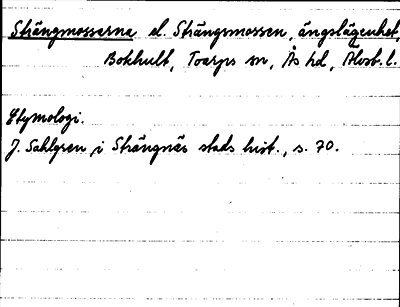 Strängmossarna el. Strängmossen, ängslägenhet,
Bokhult, Toarps sn, Ås hd, Älvsb. l.
Etymologi.
J. Sahlgren i Strängnäs stads hist., s. 70.